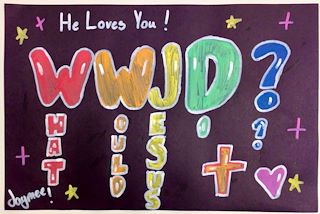 He Loves You!
WWJD?
WHAT
WOULD
JESUS
DO
??
Jaymee!